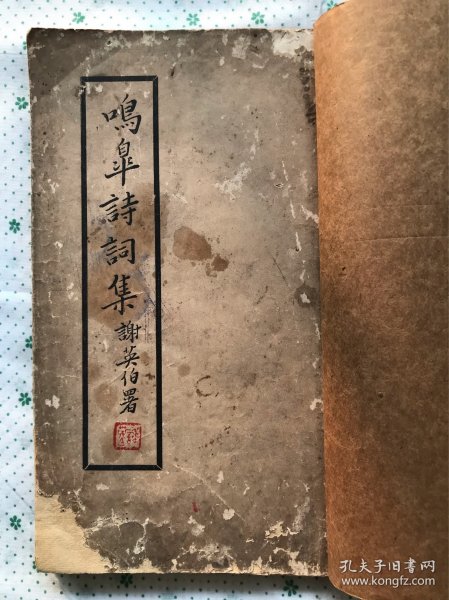 鳴皋詩詞集
謝英伯署
孔夫子旧书网
www.kongfz.com